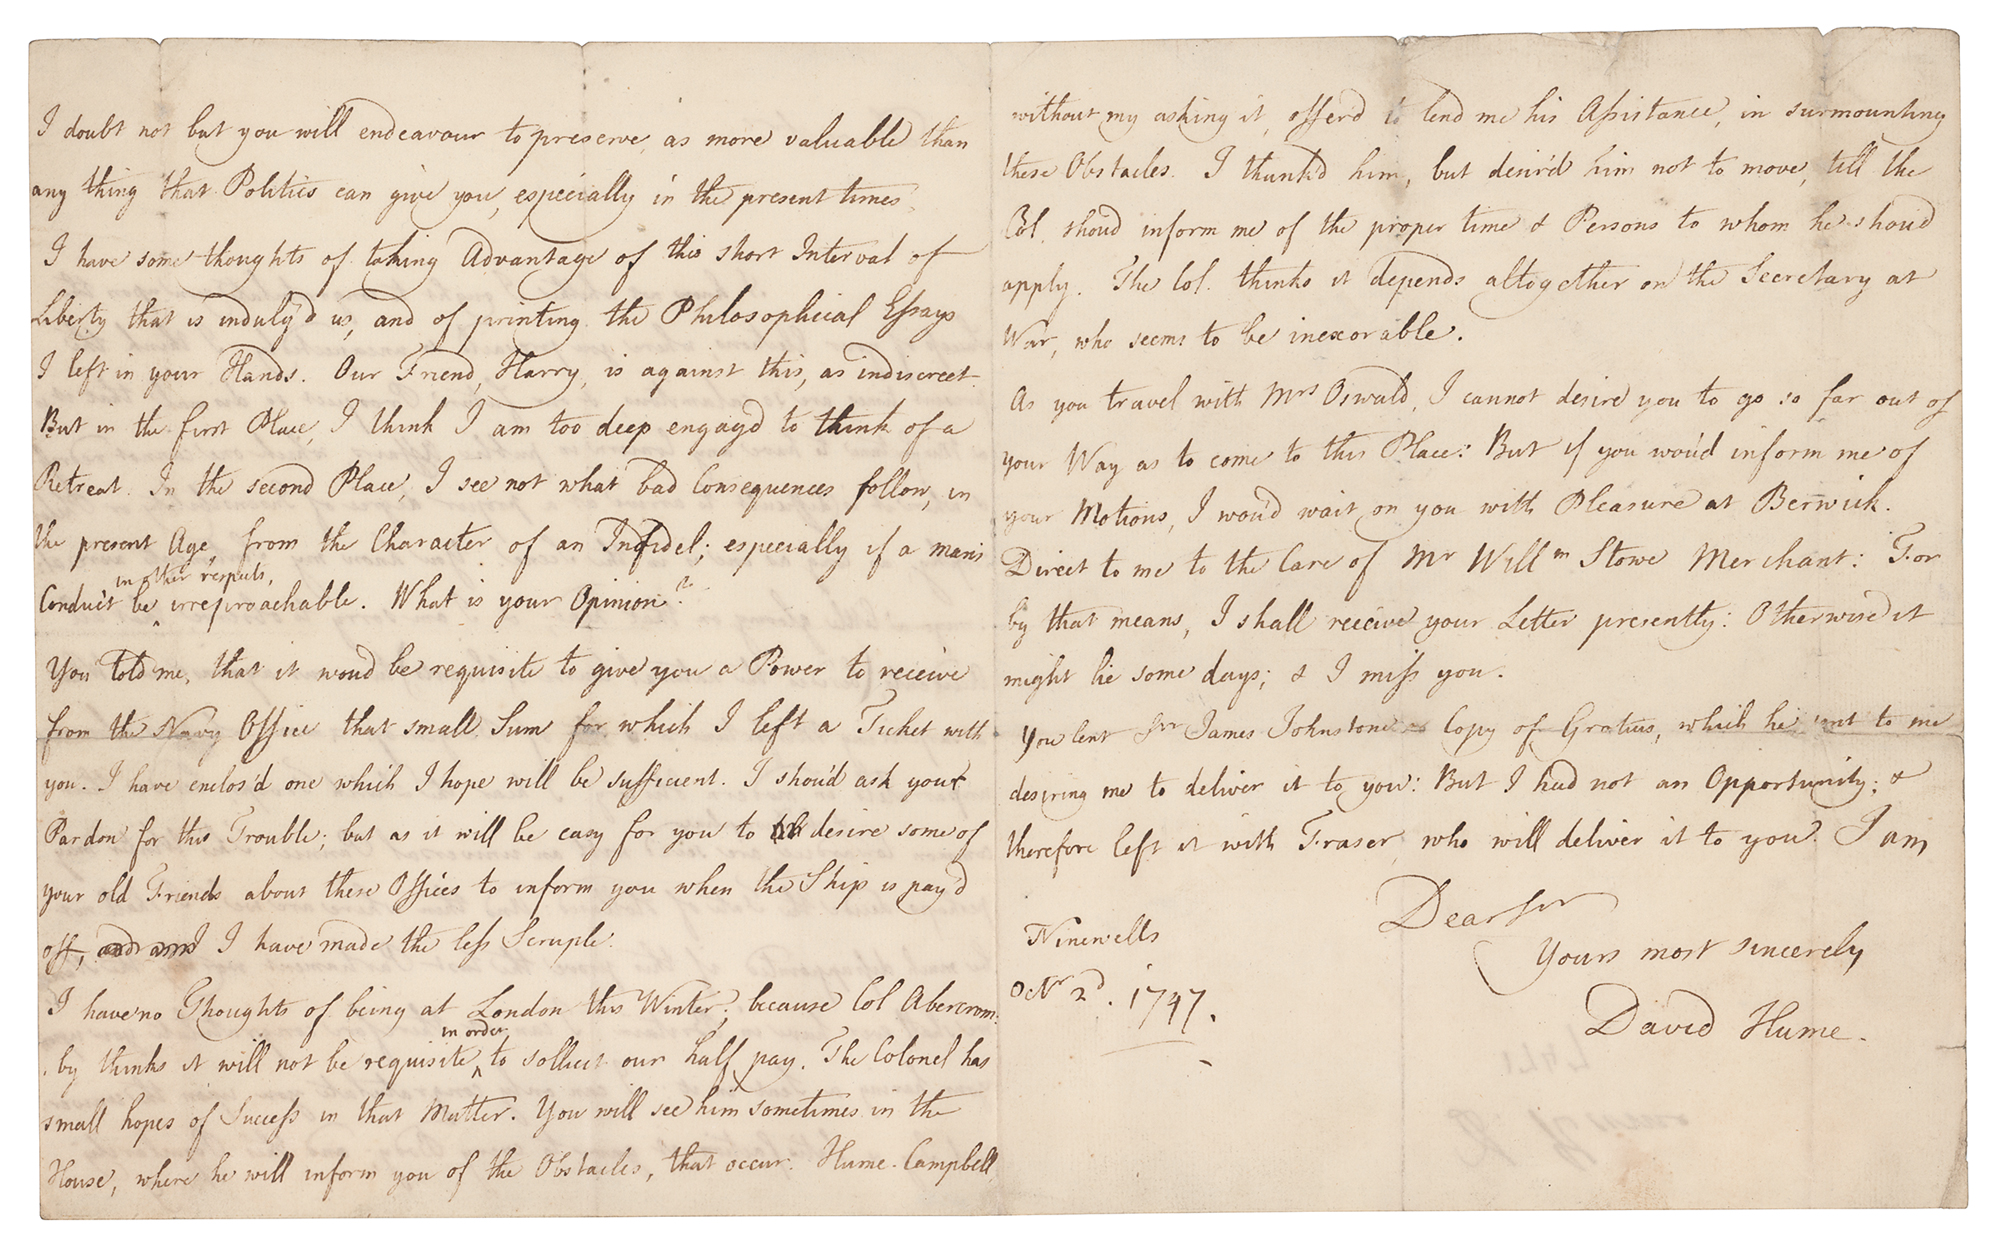 I doubt not but you will endeavour to preserve, as more valuable than
any thing that Politics can give you, especially in the present times.
I have some thoughts of taking Advantage of this short Interval of
Liberty that is indulg'd us, and of printing the Philosophical Essays
I left in your Hands. Our Friend, Harry, is against this, as indiscreet.
But in the first Place, I think I am too deep engag'd to think of a
Retreat. In the second Place, I see not what bad Consequences follow, in
the present Age, from the Character of an Infidel; especially if a man's
in other respects,
Conduct be ^ irreproachable. What is your Opinion?
You told me, that it woud be requisite to give you a Power to receive
from the Navy Office that small Sum for which I left a Ticket with
you. I have enclos'd one which I hope will be sufficient. I shou'd ask your
Pardon for this Trouble; but as it will be easy for you to desire some of
your old Friends about these Offices to inform you when the Ship is pay'd
off, I have made the less Scruple.
I have no Thoughts of being at London this Winter; because Col Abercrom-
in order
by thinks it will not be requisite ^ to sollicit our half pay. The Colonel has
small hopes of Success in that Matter. You will see him sometimes in the
House, where he will inform you of the Obstacles, that occur. Hume-Campbell,
without my asking it, offer'd to lend me his Assistance, in surmounting
these Obstacles. I thank'd him, but desir'd him not to move, till the
Col. shoud inform me of the proper time & Persons to whom he shoud
apply. The Col. thinks it depends altogether on the Secretary at
War, who seems to be inexorable.
As you travel with Mrs Oswald, I cannot desire you to go so far out of
your Way as to come to this Place: But if you wou'd inform me of
your Motions, I wou'd wait on you with Pleasure at Berwick.
Direct to me to the Care of Mr Willm Stowe Merchant: For
by that means, I shall receive your Letter presently: Otherwise it
might lie some days; & I miss you.
You lent Sir James Johnstone a Copy of Gratius, which he sent to me
desiring me to deliver it to you: But I had not an Opportunity; &
therefore left it with Fraser, who will deliver it to you. I am
Dear Sir
Yours most sincerely
David Hume.
Ninewells
Octr 2d. 1747.